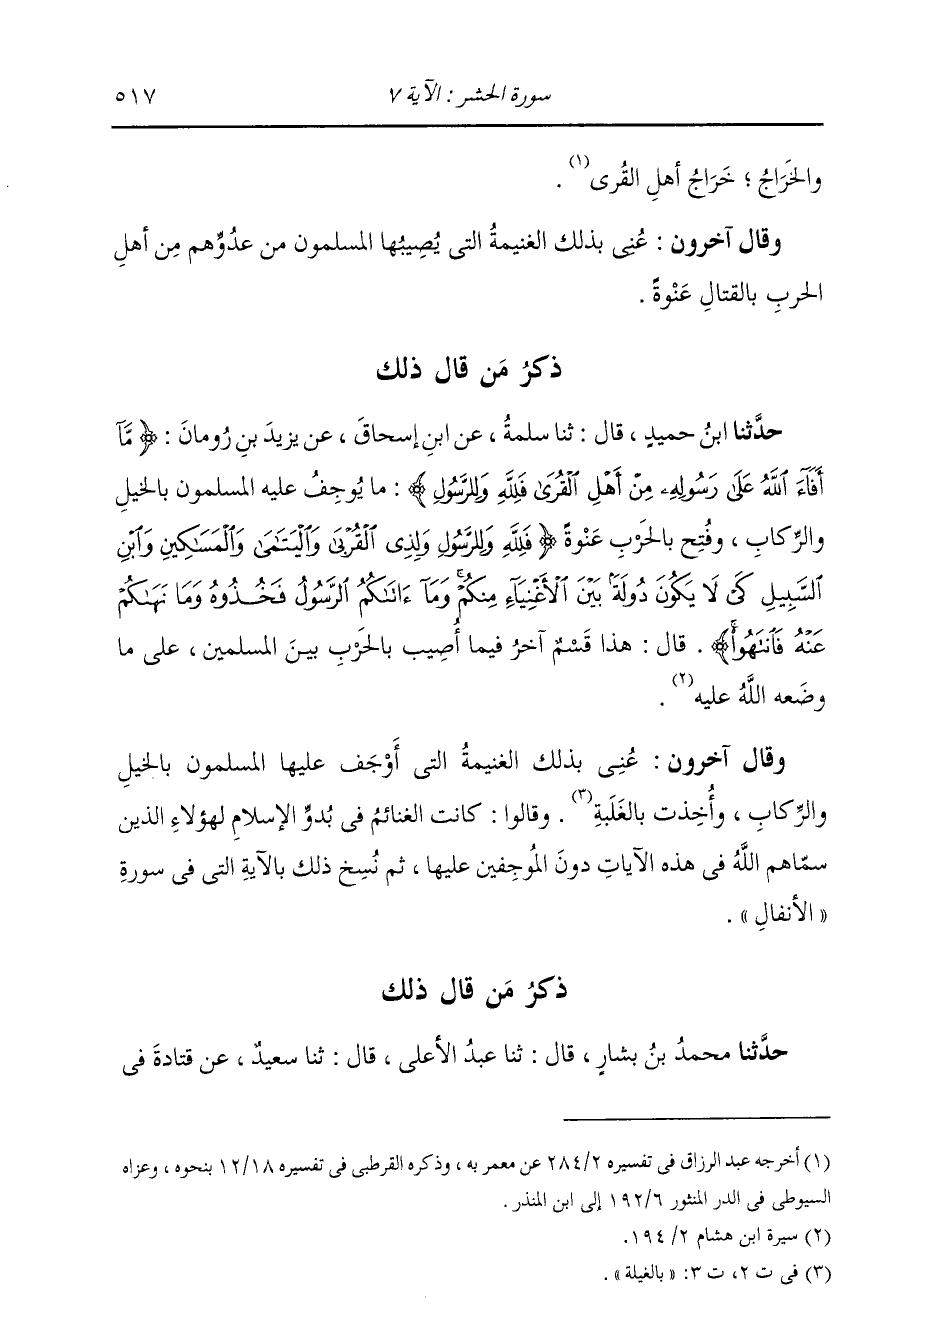 سورة الحشر : الآية ٧ ٥١٧
والخَرَاجُ ؛ خَرَاجُ أهلِ القُرى(١) .
وقال آخرون : عُنِى بذلك الغنيمةُ التى يُصِيبُها المسلمون من عدُوِّهم مِن أهلِ
الحربِ بالقتالِ عَنْوةً .
ذكرُ مَن قال ذلك
حدَّثنا ابنُ حميدٍ ، قال : ثنا سلمةُ ، عن ابنِ إسحاقَ ، عن يزيدَ بنِ رُومانَ : ﴿ مَّآ
أَفَآءَ ٱللَّهُ عَلَىٰ رَسُولِهِۦ مِنْ أَهْلِ ٱلْقُرَىٰ فَلِلَّهِ وَلِلرَّسُولِ ﴾ : ما يُوجِفُ عليه المسلمون بالخيلِ
والرِّكابِ ، وفُتِح بالحَرْبِ عَنْوةً ﴿ فَلِلَّهِ وَلِلرَّسُولِ وَلِذِى ٱلْقُرْبَىٰ وَٱلْيَتَٰمَىٰ وَٱلْمَسَٰكِينِ وَٱبْنِ
ٱلسَّبِيلِ كَىْ لَا يَكُونَ دُولَةًۢ بَيْنَ ٱلْأَغْنِيَآءِ مِنكُمْ ۚ وَمَآ ءَاتَىٰكُمُ ٱلرَّسُولُ فَخُذُوهُ وَمَا نَهَىٰكُمْ
عَنْهُ فَٱنتَهُوا۟ ۚ﴾ . قال : هذا قَسْمٌ آخرُ فيما أُصِيب بالحَرْبِ بينَ المسلمين ، على ما
وضَعه اللَّهُ عليه(٢) .
وقال آخرون : عُنِى بذلك الغنيمةُ التى أَوْجَف عليها المسلمون بالخيلِ
والرِّكابِ ، وأُخِذت بالغَلَبةِ(٣) . وقالوا : كانت الغنائمُ فى بُدوِّ الإسلامِ لهؤلاءِ الذين
سمّاهم اللَّهُ فى هذه الآياتِ دونَ المُوجِفين عليها ، ثم نُسِخ ذلك بالآيةِ التى فى سورةِ
« الأنفالِ » .
ذكرُ مَن قال ذلك
حدَّثنا محمدُ بنُ بشارٍ ، قال : ثنا عبدُ الأعلى ، قال : ثنا سعيدٌ ، عن قتادةَ فى
(١) أخرجه عبد الرزاق فى تفسيره ٢/ ٢٨٤ عن معمر به ، وذكره القرطبى فى تفسيره ١٨/ ١٢ بنحوه ، وعزاه
السيوطى فى الدر المنثور ٦/ ١٩٢ إلى ابن المنذر .
(٢) سيرة ابن هشام ٢/ ١٩٤.
(٣) فى ت ٢، ت ٣: « بالغيلة » .